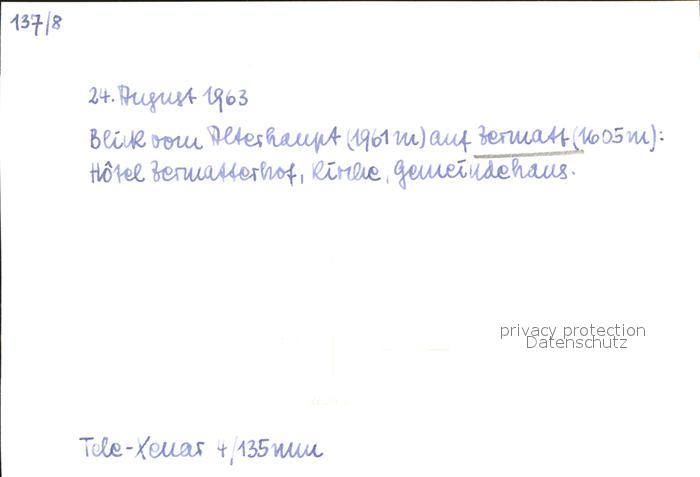 137/8
24. August 1963
Blick vom Alterhaupt (1961 m) auf Zermatt (1605 m):
Hôtel Zermatterhof, Kirche, Gemeindehaus.
privacy protection
Datenschutz
Tele-Xenar 4/135mm